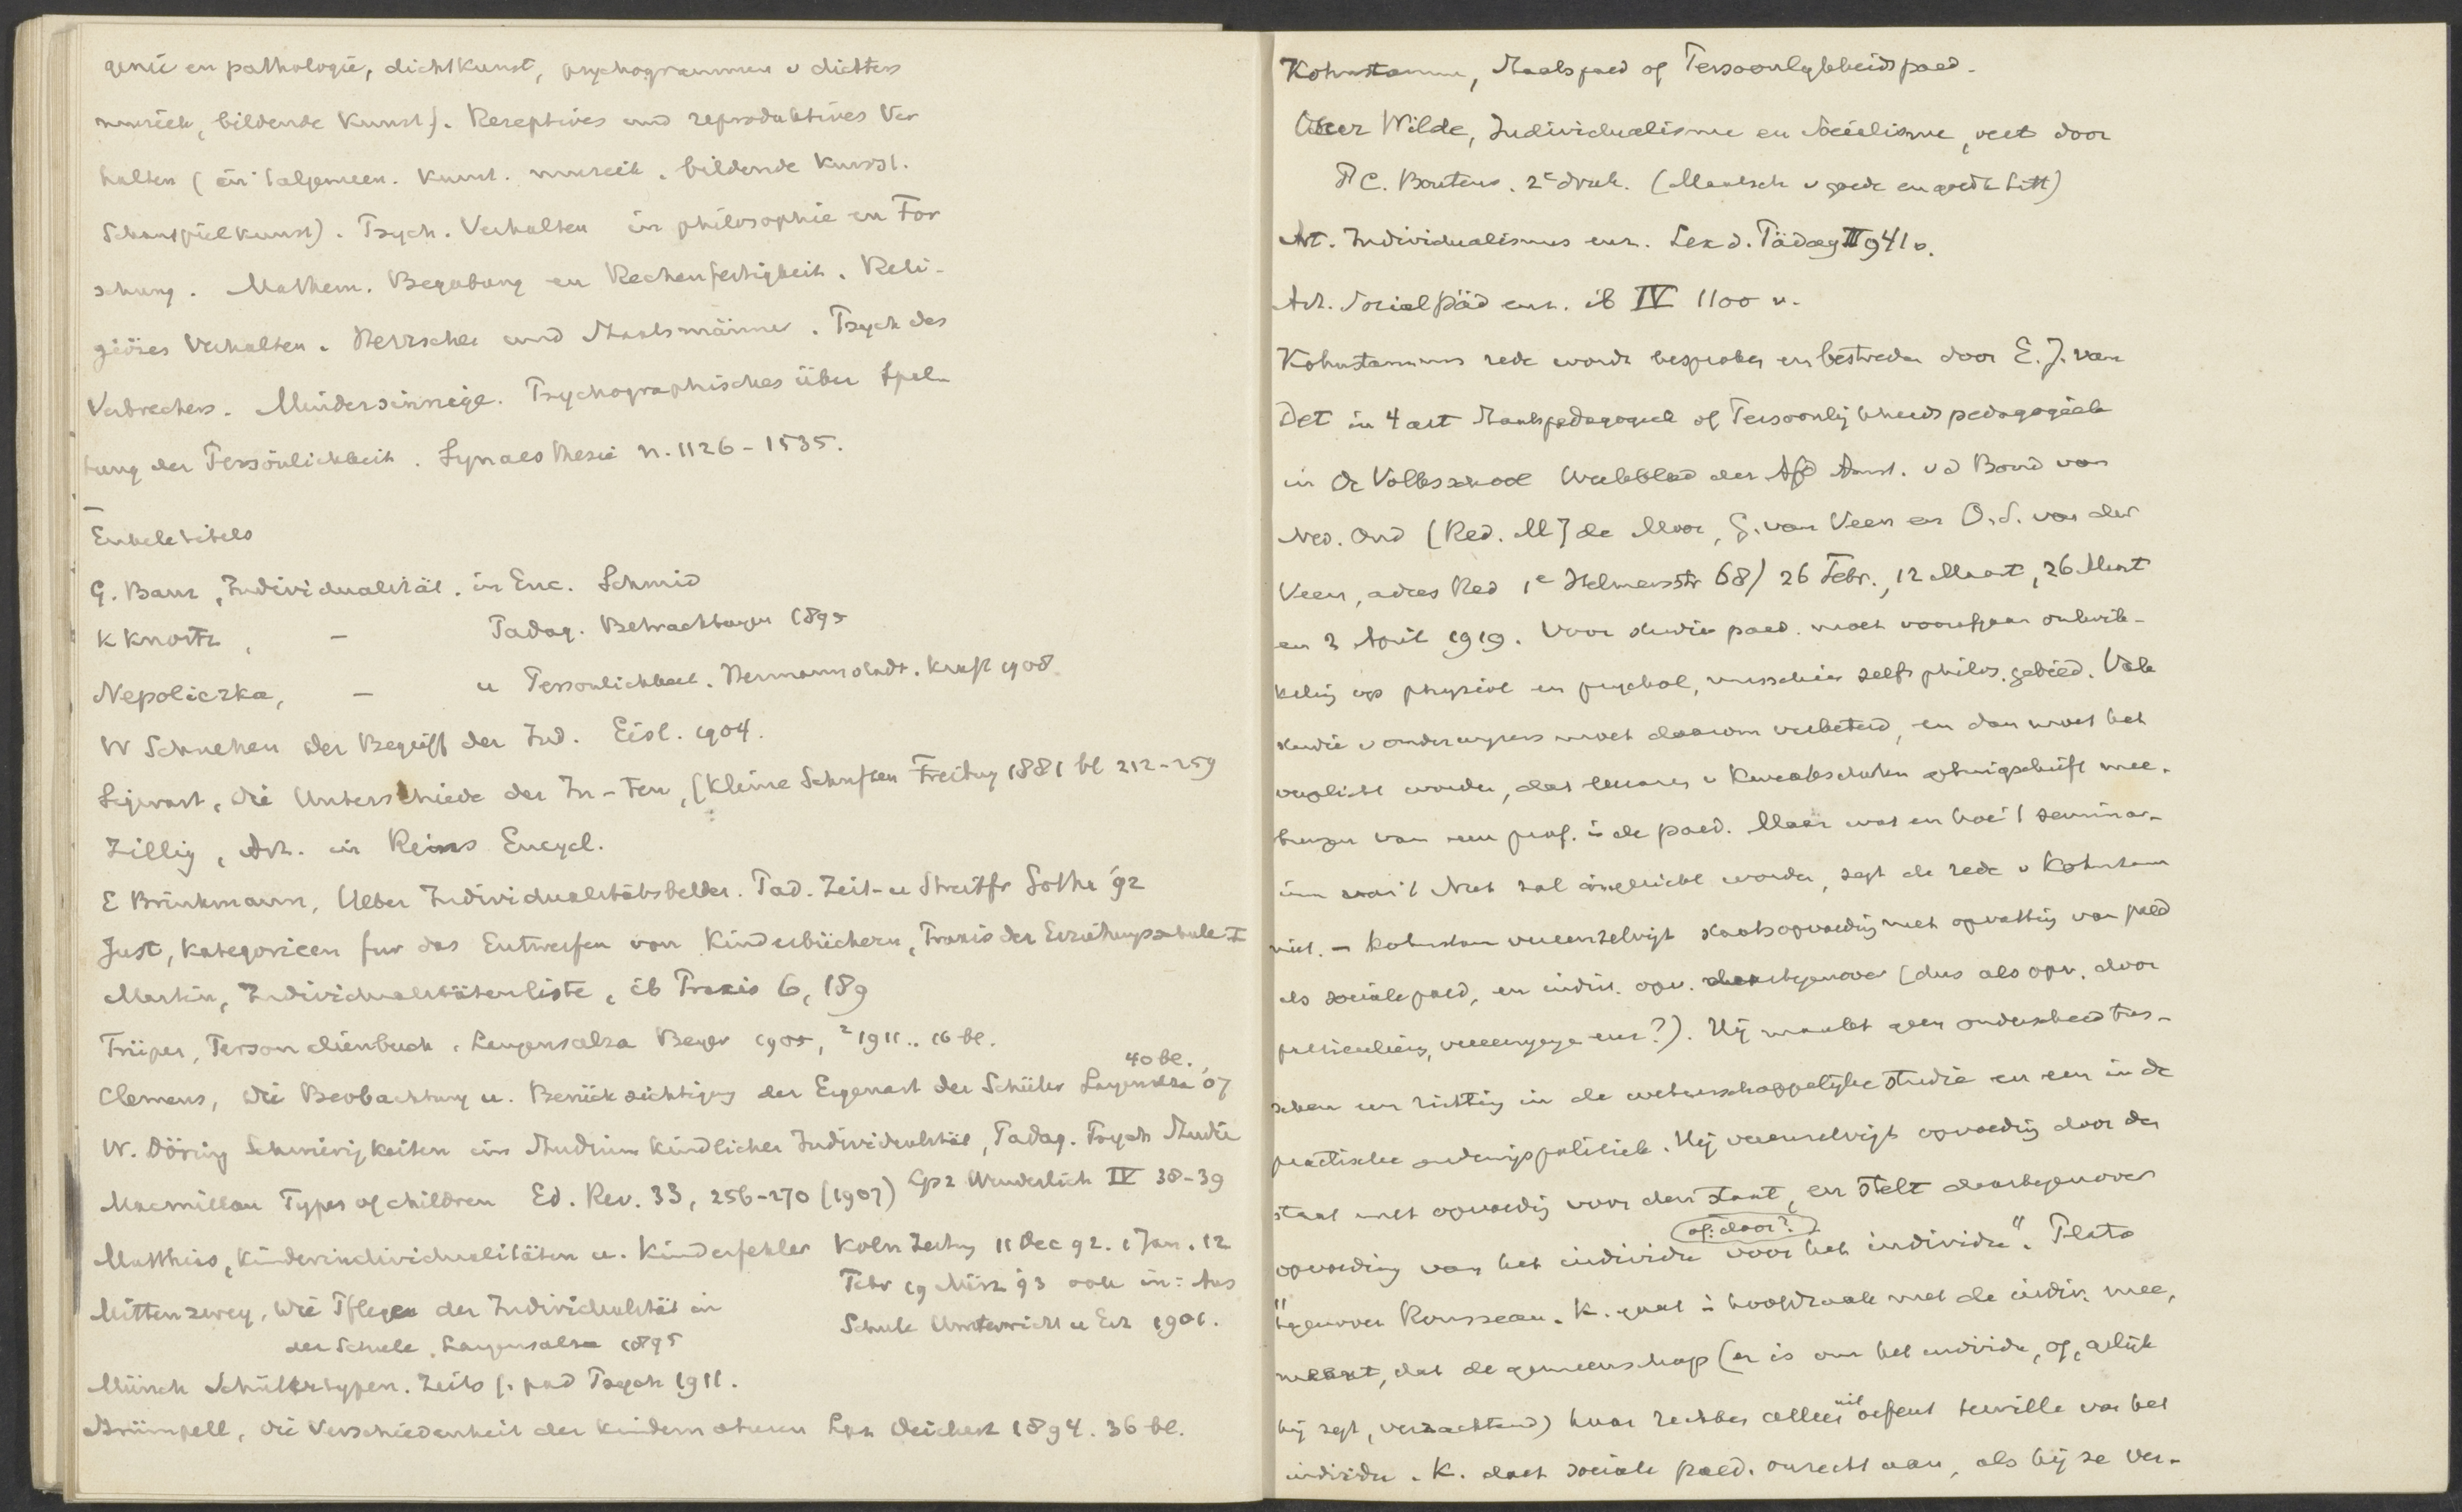 genie en pathologie, dichtkunst, psychogrammen v dichters
muziek, bildende Kunst). Rezeptives und reproduktives Ver
halten (in 't algemeen. Kunst. muziek. bildende Kunst.
Schauspielkunst). Psych. Verhalten in philosophie en For
schung. Mathem. Begabung en Rechenfertigkeit. Reli-
giöses Verhalten. Herrscher und Staatsmänner. Psych des
Verbrechers. Mindersinnige. Psychographisches über Spal-
tung der Persönlichkeit. Synaesthesie n. 1126-1535.
Enkele titels
G. Baur, Individualität. in Enc. Schmid
K Knortz, — Padag. Betrachtungen 1895
Nepoliczka, — u Personlichkeit. Hermannstadt. Kraft 1908.
W Schnehen der Begriff der Ind. Eisl. 1904.
Sigwart, die Unterschiede der In-ten, (Kleine Schriften Freiburg 1881 bl 212-259
Zillig, Art. in Reins Encycl.
E Brinkmann, Ueber Individualitätsbilder. Pad. Zeit- u Streitfr Gotha '92
Just, Kategorieen fur das Entwerfen von Kinderbüchern, Praxis der Erziehungsschule I
Martin, Individualitätenliste, ib Praxis 6, 189
Trüper, Personalienbuch. Langensalza Beyer 1905, ²1911.. 16 bl.
Clemens, die Beobachtung u. Berücksichtigung der Eigenart der Schüler Langensalza '07 40 bl.
W. Döring Schwierigkeiten im Studium kindlicher Individualität, Padag. Psych Studie
Lpz Wunderlich IV 38-39
Macmillan Types of children Ed. Rev. 33, 256-270 (1907)
Matthias, Kinderindividualitäten u. Kinderfehler Koln Zeitung 11 Dec 92. 1 Jan. 12
Febr 19 März 93 ook in: Aus
Schule Unterricht u Erz 1901.
Mittenzwey, Die Pflege der Individualität in
der Schule. Langensalza 1895
Münch Schülertypen. Zeits f. pad Psych 1911.
Strümpell, die Verschiedenheit der Kindernaturen Lpz Deichert 1894. 36 bl.
Kohnstamm, Staatspaed of Persoonlykheidspaed.
Oscar Wilde, Individualisme en Socialisme, vert door
P C. Boutens. 2e druk. (Maatsch v goede en goedk Litt)
Art. Individualismus enz. Lex d. Pädag II 941 v.
Art. Socialpäd enz. ib IV 1100 v.
Kohnstamms rede wordt besproken en bestreden door E. J. van
Det in 4 art Staatspedagogiek of Persoonlijkheidspedagogiek
in De Volksschool Weekblad der Afd Amst. v d Bond van
Ned. Ond (Red. M J de Moor, G. van Veen en O. S. van der
Veen, adres Red 1e Helmersstr 68) 26 Febr., 12 Maart, 26 Mart
en 3 April 1919. Voor studie paed. moet voorafgaan ontwik-
keling op physiol en psychol, misschien zelfs philos. gebied. Vak
studie v onderwyzers moet daarom verbeterd, en dan moet het
verplicht worden, dat leeraren v Kweekscholen getuigschrift mee-
brengen van een prof. in de paed. Maar wat en hoe 't seminar-
ium van 't Nut zal ingericht worden, zegt de rede v Kohnstam
niet. — Kohnstam vereenzelvigt staatsopvoeding met opvatting van paed
als sociale paed, en indiv. opv. daartegenover (dus als opv. door
particulieren, vereenigingen enz?). Hij maakt geen onderscheid tus-
schen een richting in de wetenschappelijke studie en een in de
practische onderwijspolitiek. Hij vereenzelvigt opvoeding door den
staat met opvoeding voor den staat, en stelt daartegenover
of: door?
opvoeding van het individu voor het individu". Plato
"tegenover Rousseau. K. gaat in hoofdzaak met de indiv. mee,
meent, dat de gemeenschap (er is om het individu, of, gelijk
hij zegt, verzachtend) haar rechten alleen uitoefent terwille van het
individu. K. doet sociale paed. onrecht aan, als hij ze ver-